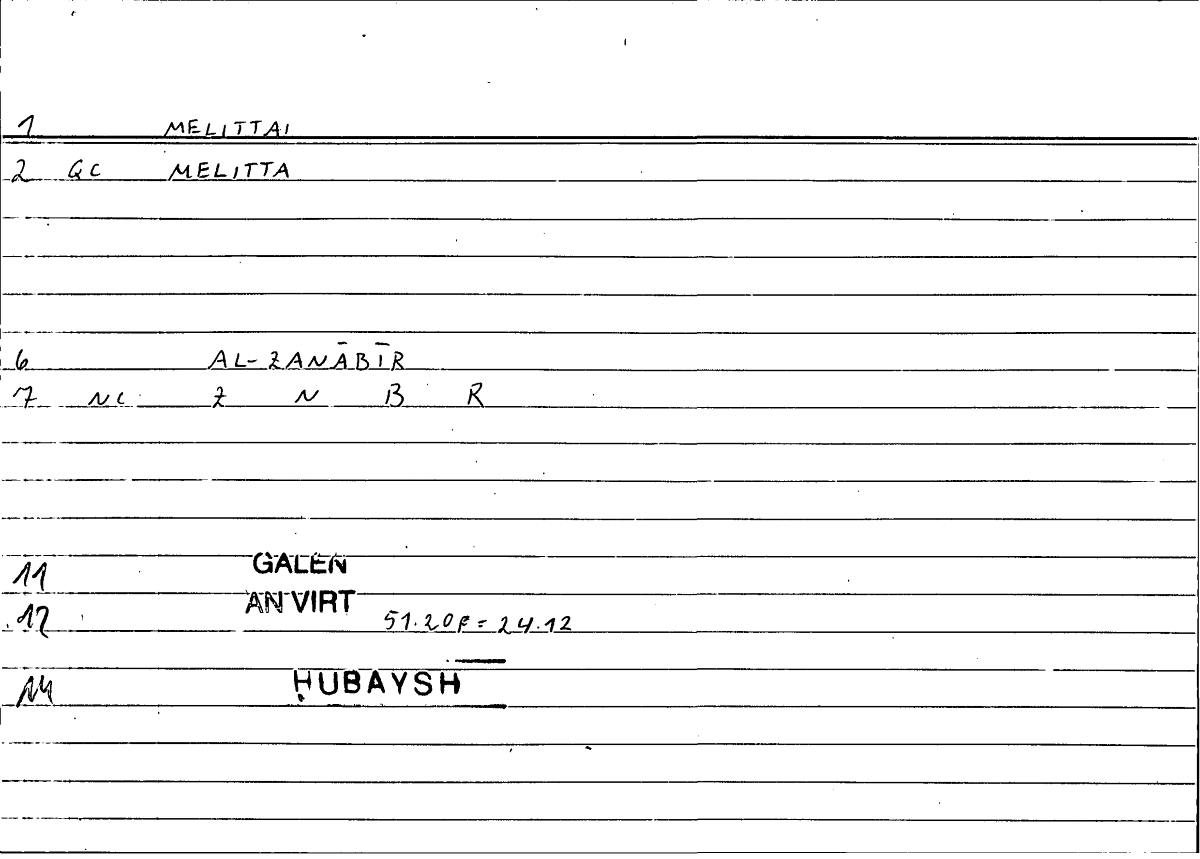 1 MELITTAI
2 GC MELITTA
6 AL-ZANĀBĪR
7 NC Z N B R
11 GALEN
12 AN VIRT 51.20f = 24.12
14 ḤUBAYSH